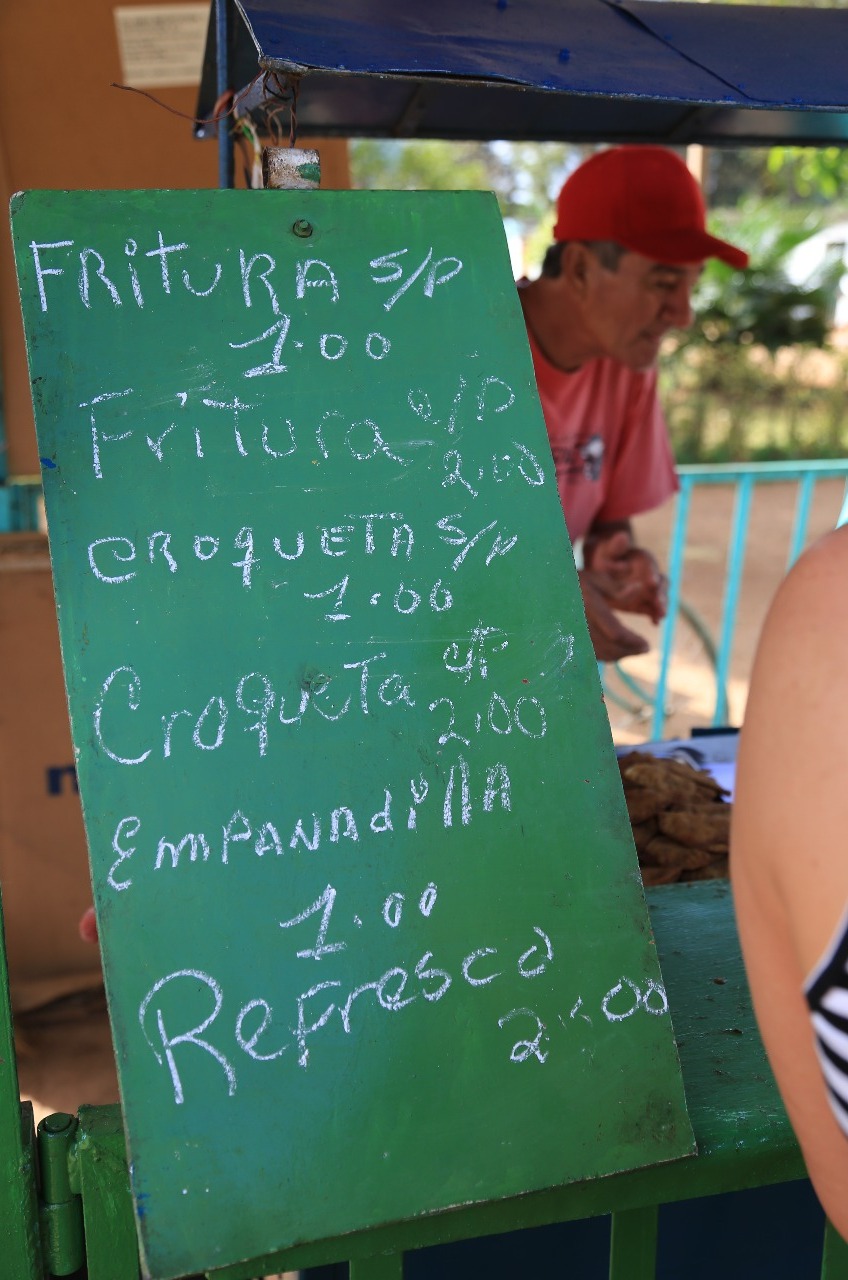 FRitURA S/P
1.00
Fritura c/p
2.00
CROQUETA S/P
1.00
Croqueta c/P
2.00
EmPANAdillA
1.00
Refresco
2.00